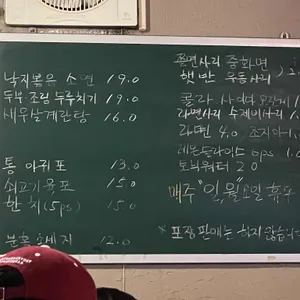 낙지볶음 소면 19.0
두부조림 두루치기 19.0
새우날계란탕 16.0
통 아귀포 13.0
쇠고기 육포 15.0
한치(5ps) 15.0
분홍소세지 12.0
쫄면사리 중화면
햇반 우동사리
콜라 사이다
라면사리 수제비사리
라면 4.0
레몬슬라이스 6ps 1.0
토닉워터 2.0
매주 "일, 월"요일 휴무
* 포장판매는 하지 않습니다